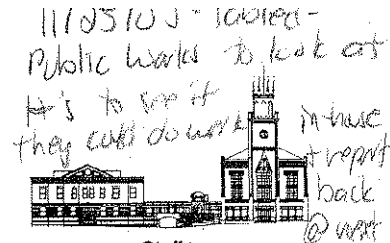 11/25/03 - Tabled -
Public Works to look at
#'s to see if
they could do work in house
+ report
back
@ next